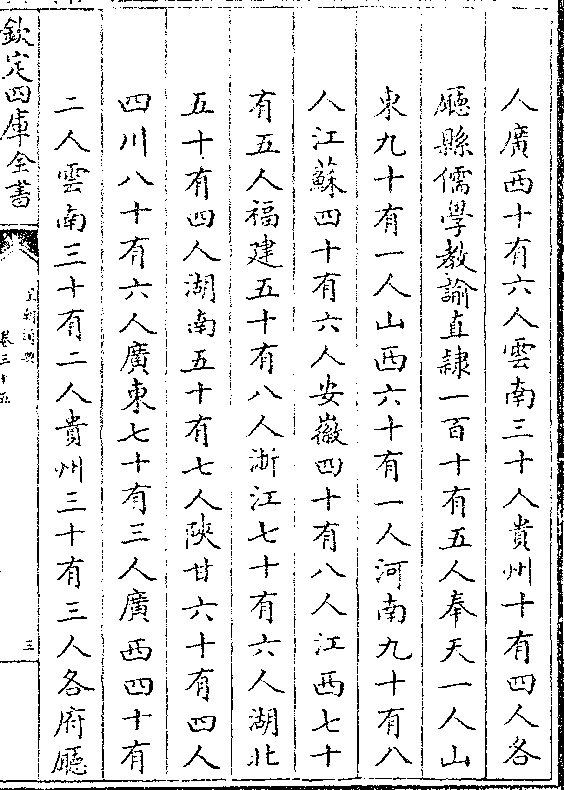 人廣西十有六人雲南三十人貴州十有四人各
廳縣儒學教諭直隸一百十有五人奉天一人山
東九十有一人山西六十有一人河南九十有八
人江蘇四十有六人安徽四十有八人江西七十
有五人福建五十有八人浙江七十有六人湖北
五十有四人湖南五十有七人陝甘六十有四人
四川八十有六人廣東七十有三人廣西四十有
二人雲南三十有二人貴州三十有三人各府廳
欽定四庫全書
卷三十五
三